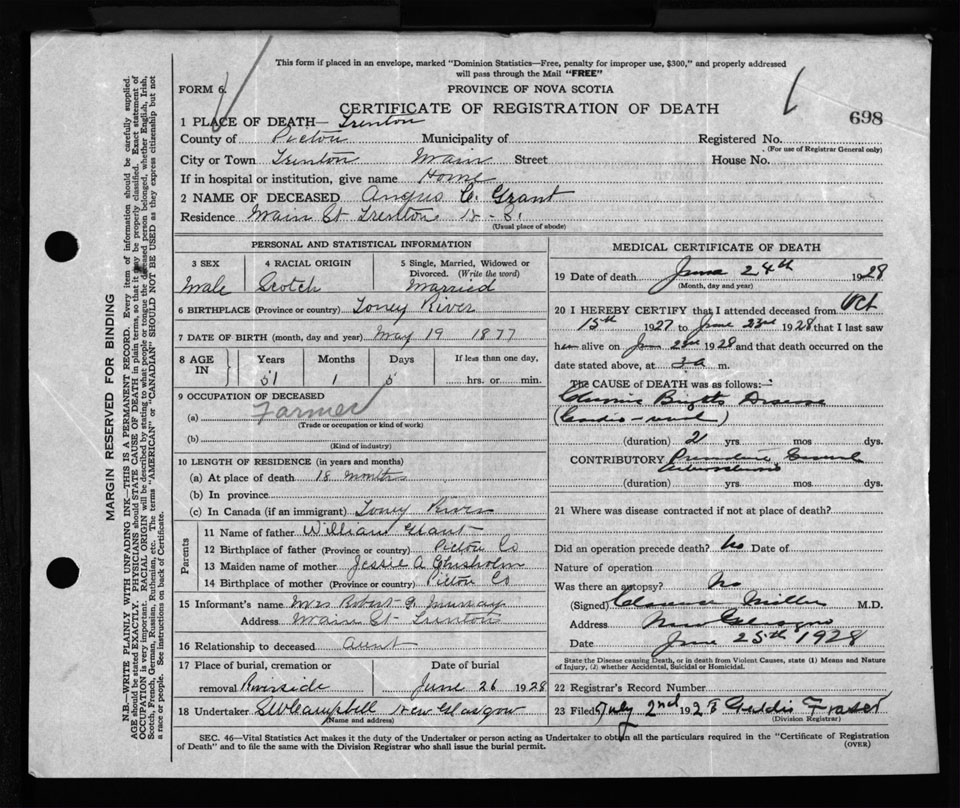 This form if placed in an envelope, marked "Dominion Statistics—Free, penalty for improper use, $300," and properly addressed
will pass through the Mail "FREE"
FORM 6.
PROVINCE OF NOVA SCOTIA
CERTIFICATE OF REGISTRATION OF DEATH
698
1 PLACE OF DEATH— Trenton
County of Pictou Municipality of Registered No.
(For use of Registrar General only)
City or Town Trenton Main Street House No.
If in hospital or institution, give name Home
2 NAME OF DECEASED Angus C. Grant
Residence Main St Trenton N. S.
(Usual place of abode)
MARGIN RESERVED FOR BINDING
N.B.—WRITE PLAINLY WITH UNFADING INK—THIS IS A PERMANENT RECORD. Every item of information should be carefully supplied.
AGE should be stated EXACTLY. PHYSICIANS should STATE CAUSE OF DEATH in plain terms, so that it may be properly classified. Exact statement of
OCCUPATION is very important. RACIAL ORIGIN will be described by stating to what people or tongue the deceased person belonged, whether English, Irish,
Scotch, French, German, Russian, Ruthenian, etc. The terms "AMERICAN" or "CANADIAN" SHOULD NOT BE USED as they express citizenship but not
a race or people. See instructions on back of Certificate.
PERSONAL AND STATISTICAL INFORMATION
3 SEX 4 RACIAL ORIGIN 5 Single, Married, Widowed or
Divorced. (Write the word)
Male Scotch Married
6 BIRTHPLACE (Province or country) Toney River
7 DATE OF BIRTH (month, day and year) May 19 1877
8 AGE IN Years Months Days If less than one day,
51 1 5 hrs. or min.
9 OCCUPATION OF DECEASED
(a) Farmer
(Trade or occupation or kind of work)
(b)
(Kind of industry)
10 LENGTH OF RESIDENCE (in years and months)
(a) At place of death 18 months
(b) In province
(c) In Canada (if an immigrant) Toney River
Parents
11 Name of father William Grant
12 Birthplace of father (Province or country) Pictou Co
13 Maiden name of mother Jessie A Chisholm
14 Birthplace of mother (Province or country) Pictou Co
15 Informant's name Mrs Robert G. Murray
Address Main St - Trenton
16 Relationship to deceased aunt
17 Place of burial, cremation or Date of burial
removal Riverside June 26 1928
18 Undertaker SW Campbell New Glasgow
(Name and address)
MEDICAL CERTIFICATE OF DEATH
19 Date of death June 24th 1928
(Month, day and year)
20 I HEREBY CERTIFY that I attended deceased from Oct
15th 1927 to June 23rd 1928 that I last saw
him alive on June 23rd 1928 and that death occurred on the
date stated above, at 3 a m.
The CAUSE of DEATH was as follows:—
Chronic Brights Disease
(Cardio-renal)
(duration) 2 yrs. mos dys.
CONTRIBUTORY
(duration) yrs. mos dys.
21 Where was disease contracted if not at place of death?
Did an operation precede death? No Date of
Nature of operation
Was there an autopsy? No
(Signed) Clarence Miller M.D.
Address New Glasgow
Date June 25th 1928
State the Disease causing Death, or in death from Violent Causes, state (1) Means and Nature
of Injury, (2) whether Accidental, Suicidal or Homicidal.
22 Registrar's Record Number
23 Filed July 2nd 1928 Geddie Fraser
(Division Registrar)
SEC. 46—Vital Statistics Act makes it the duty of the Undertaker or person acting as Undertaker to obtain all the particulars required in the "Certificate of Registration
of Death" and to file the same with the Division Registrar who shall issue the burial permit.
(OVER)